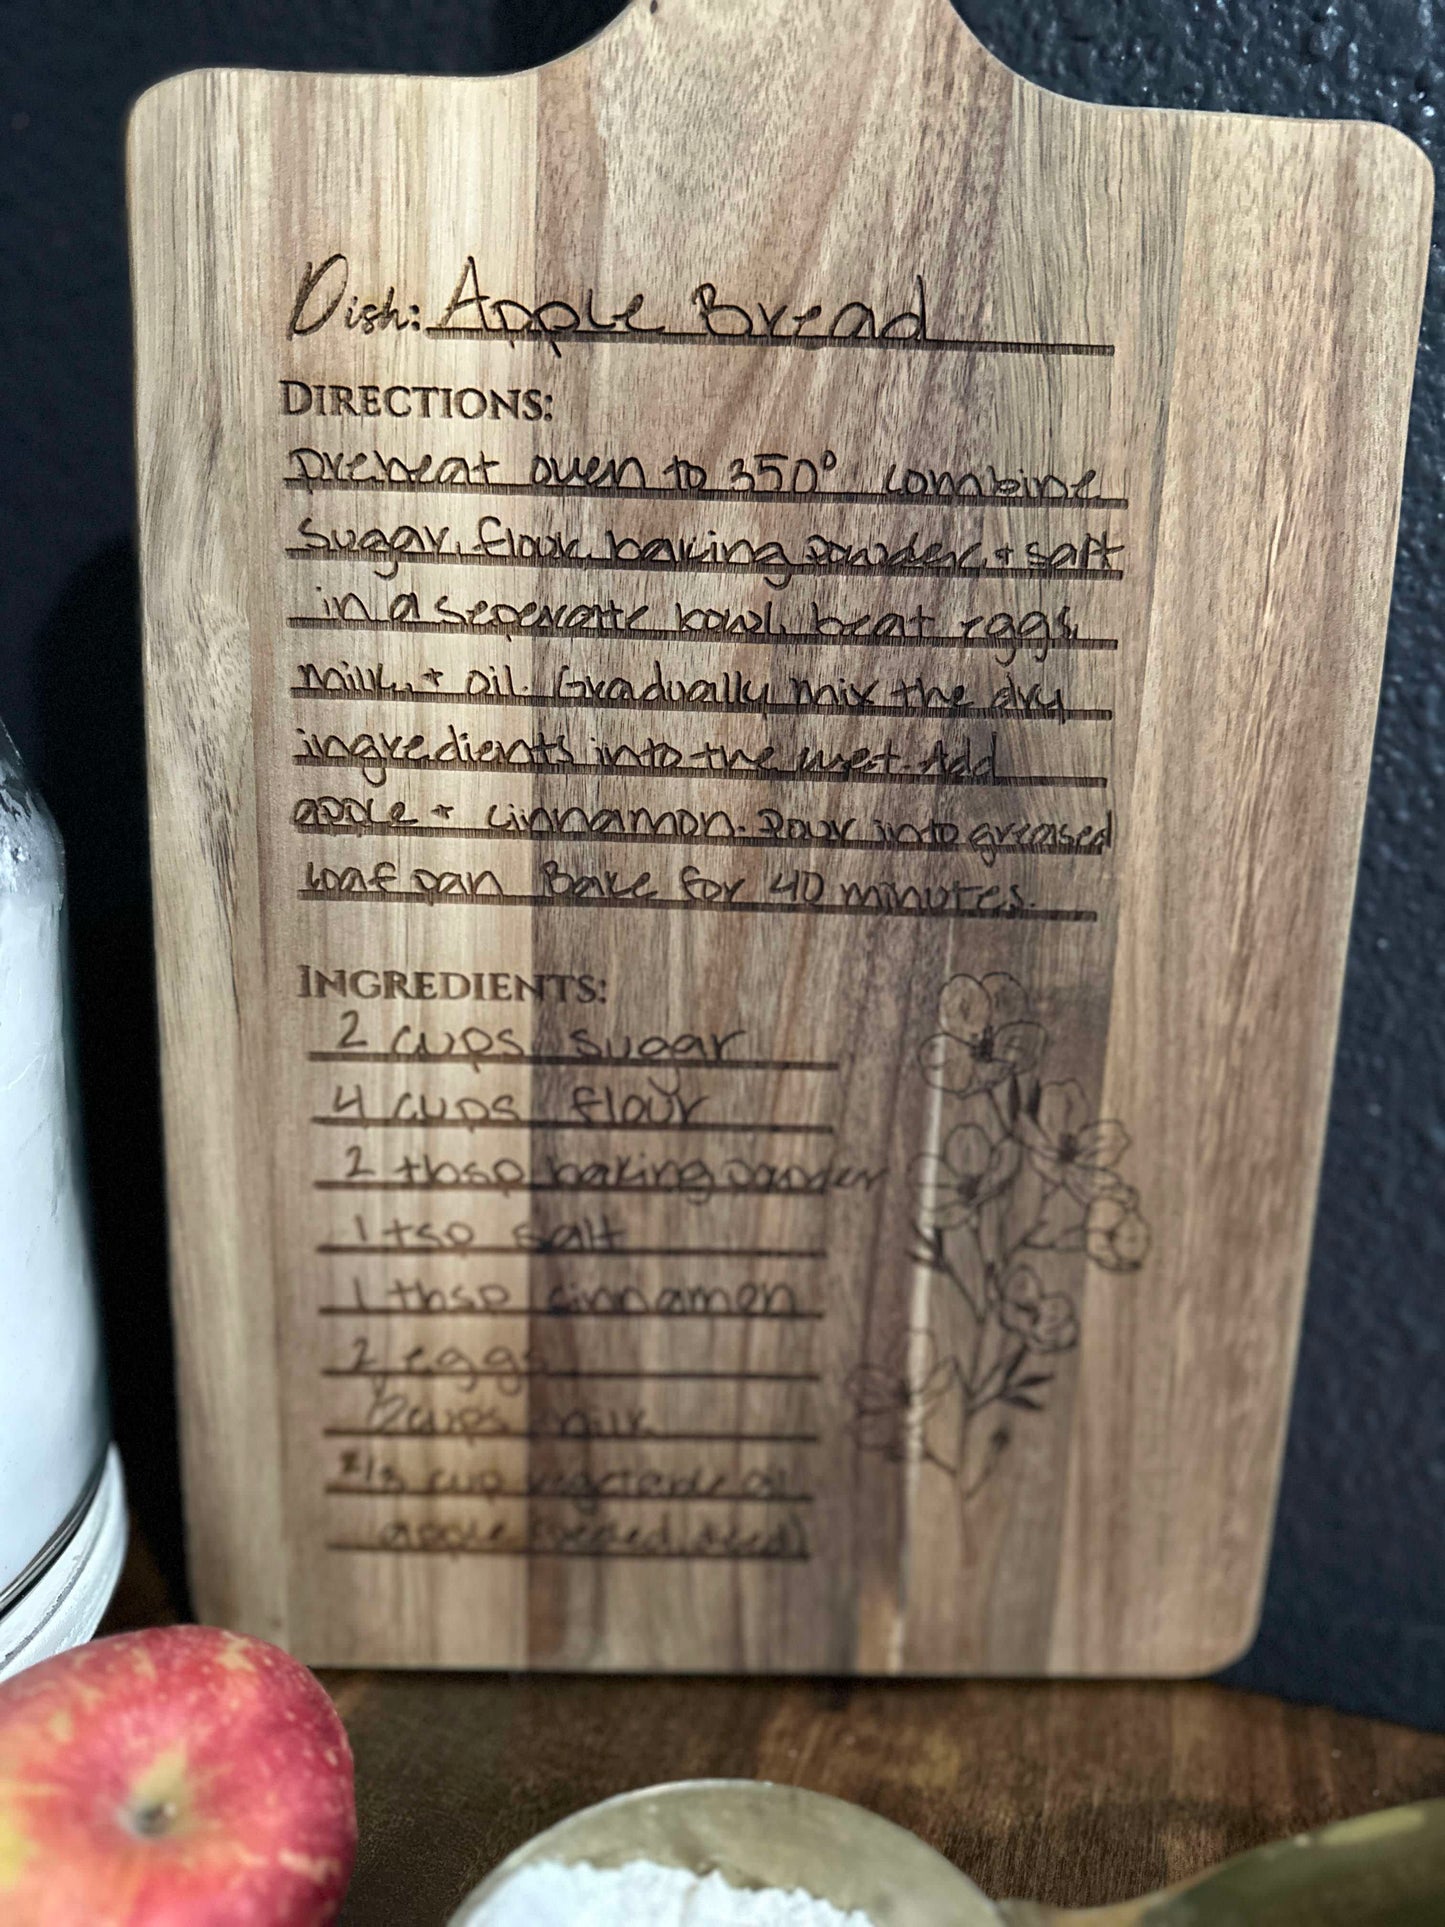 Dish: Apple Bread
DIRECTIONS:
preheat oven to 350° combine
sugar, flour, baking powder, + salt
in a seperate bowl, beat eggs,
milk, + oil. Gradually mix the dry
ingredients into the wet. Add
apple + cinnamon. Pour into greased
loaf pan Bake for 40 minutes.
INGREDIENTS:
2 cups sugar
4 cups flour
2 tbsp baking powder
1 tsp salt
1 tbsp cinnamon
2 eggs
cups milk
cup vegetable oil
apple